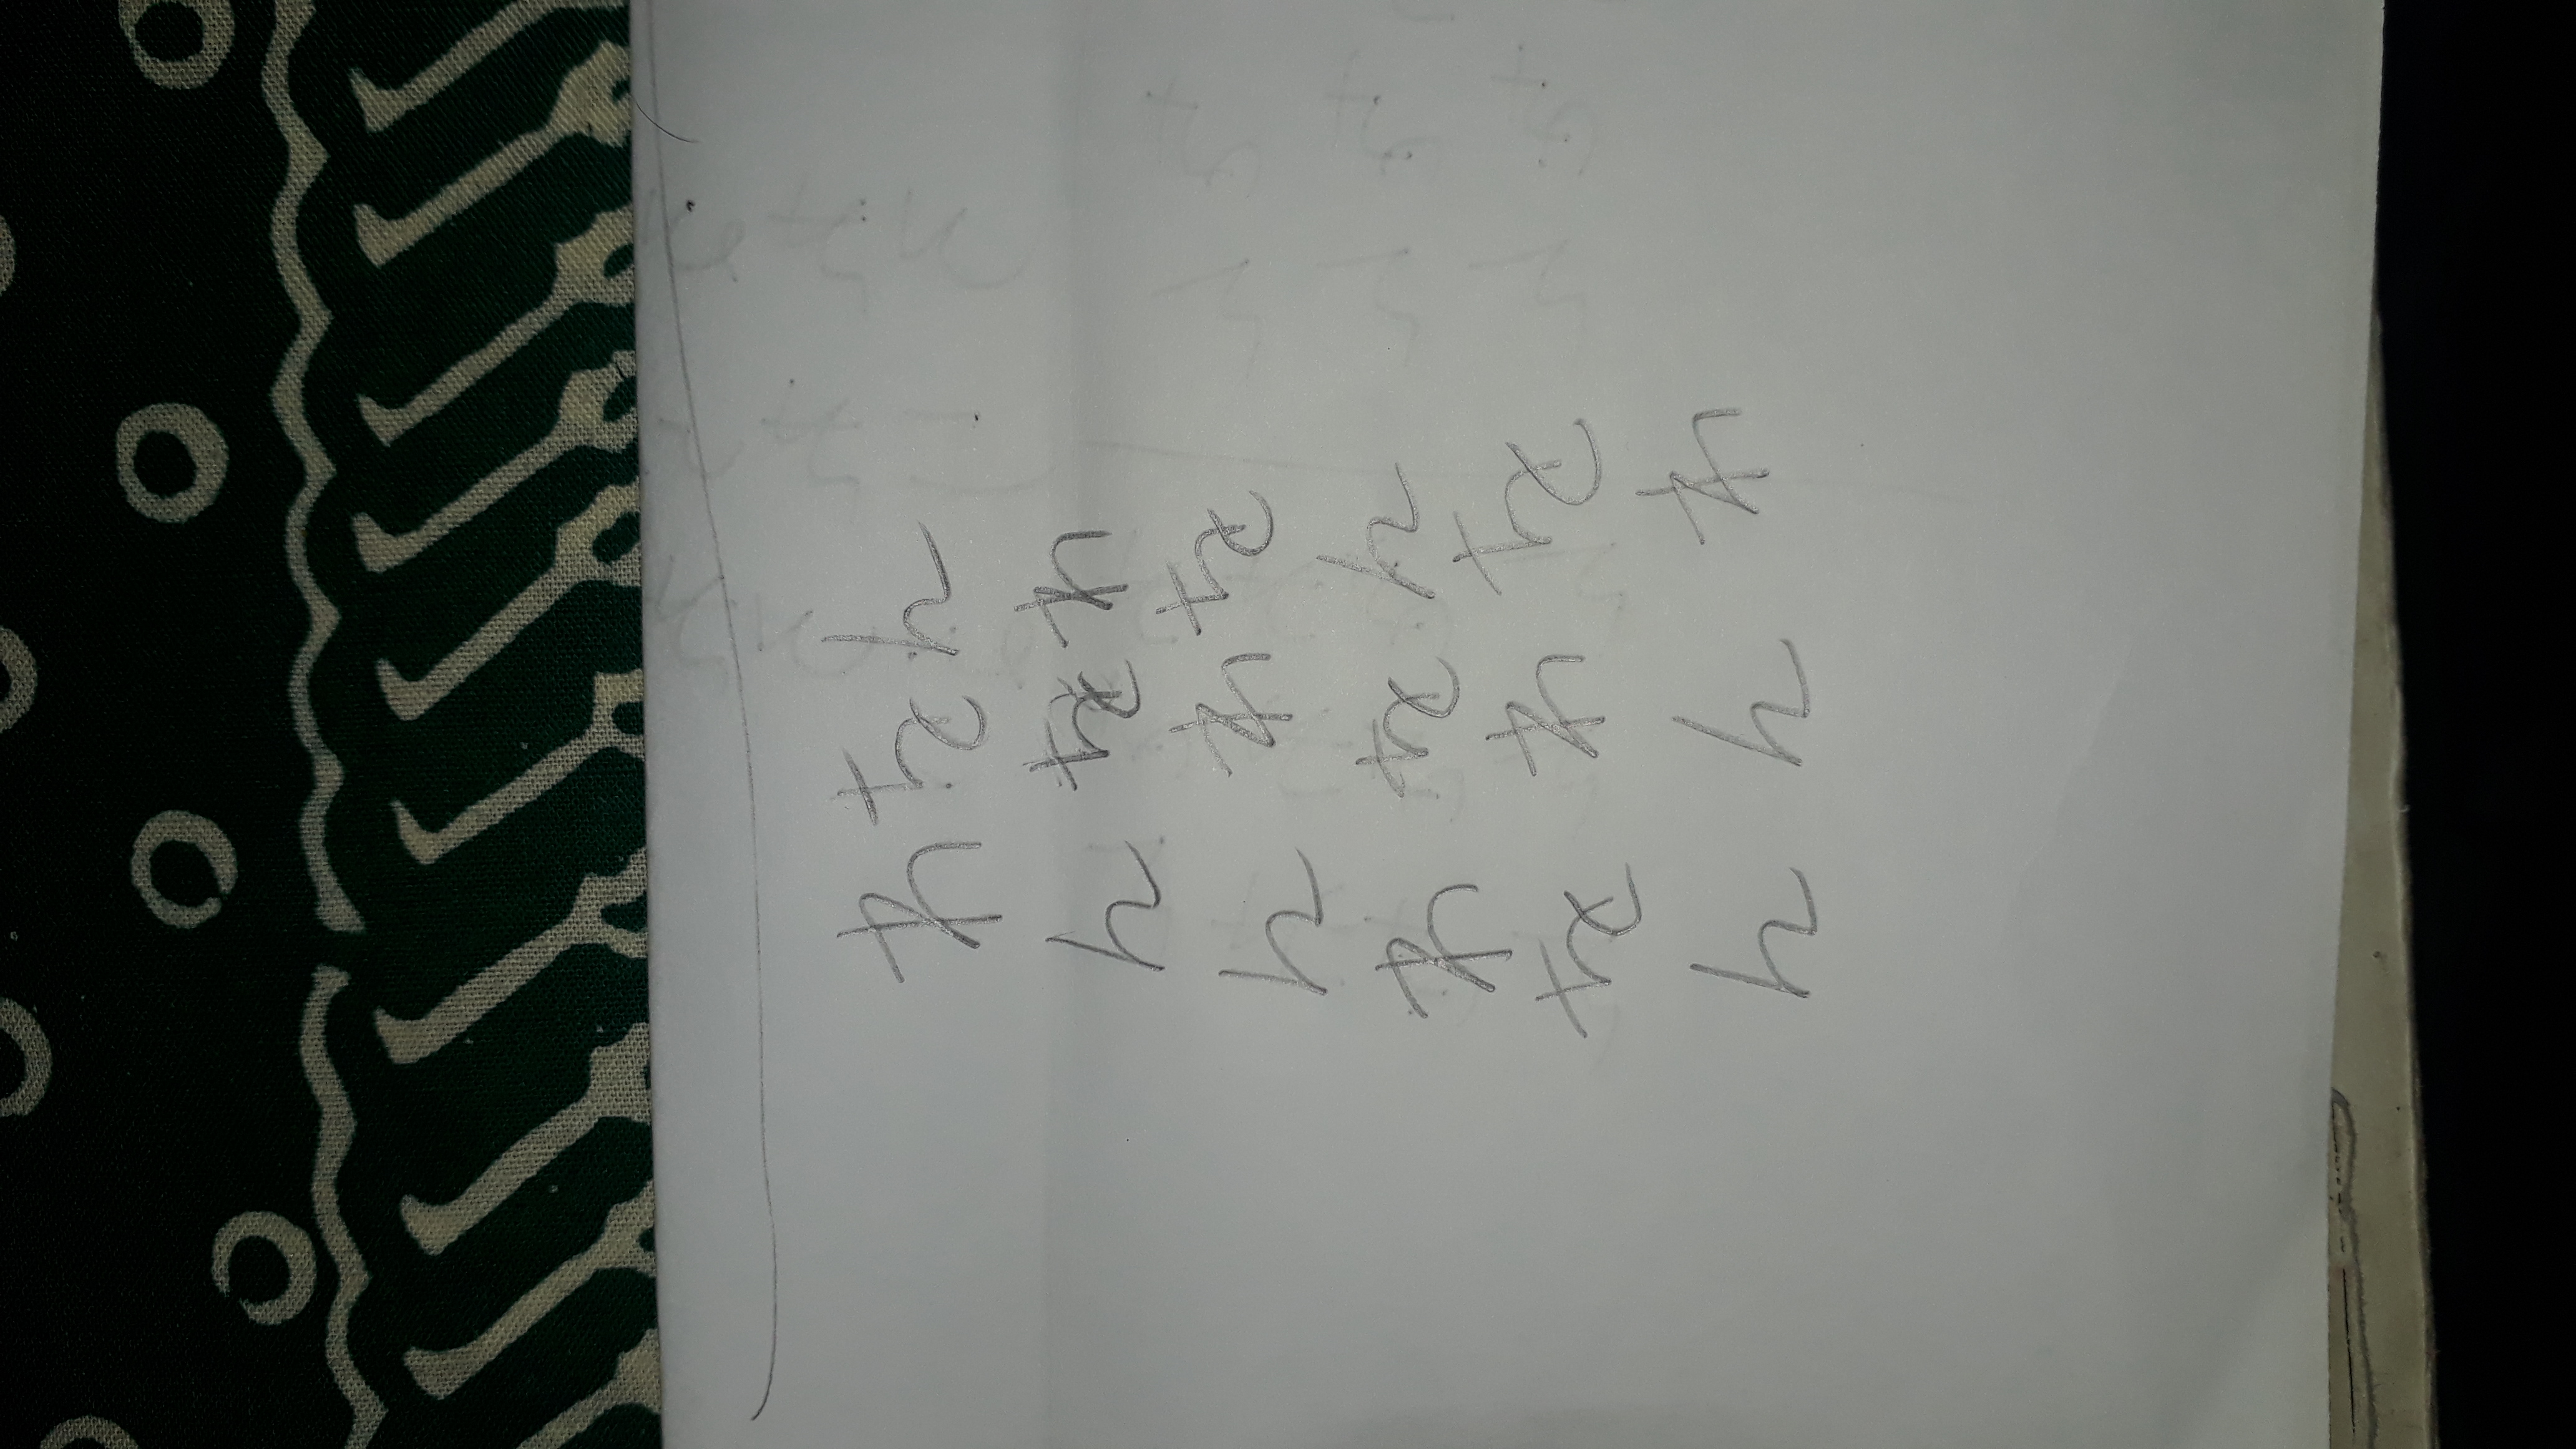 わをん
んをわ
んわを
わをん
をわを
んんわ